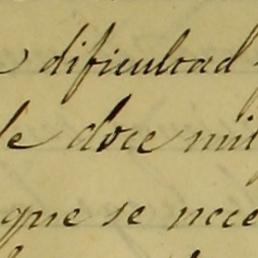 dificultad
de doce mil
que se nece